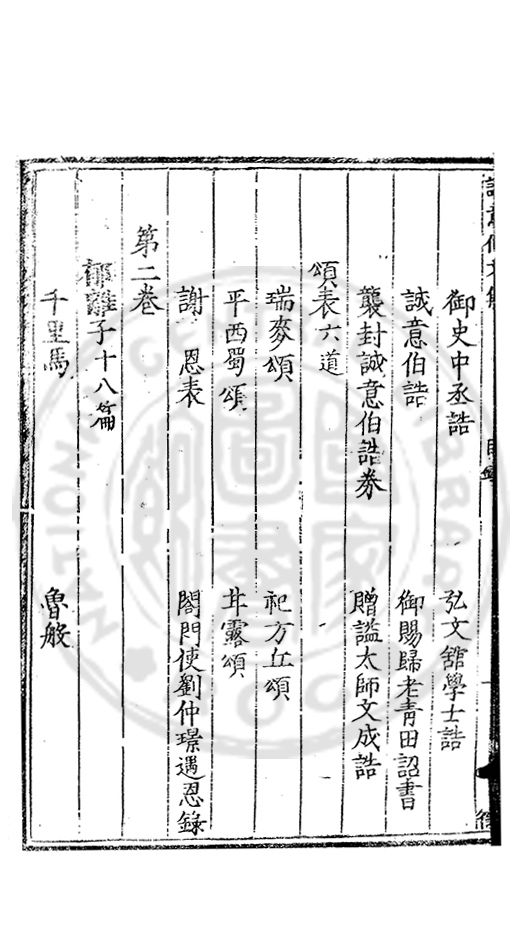 御史中丞誥 弘文館學士誥
誠意伯誥 御賜歸老青田詔書
襲封誠意伯誥券 贈謚太師文成誥
頌表六道
瑞麥頌 祀方丘頌
平西蜀頌 甘露頌
謝 恩表 閤門使劉仲璟遇恩錄
第二卷
郁離子十八篇
千里馬 魯般